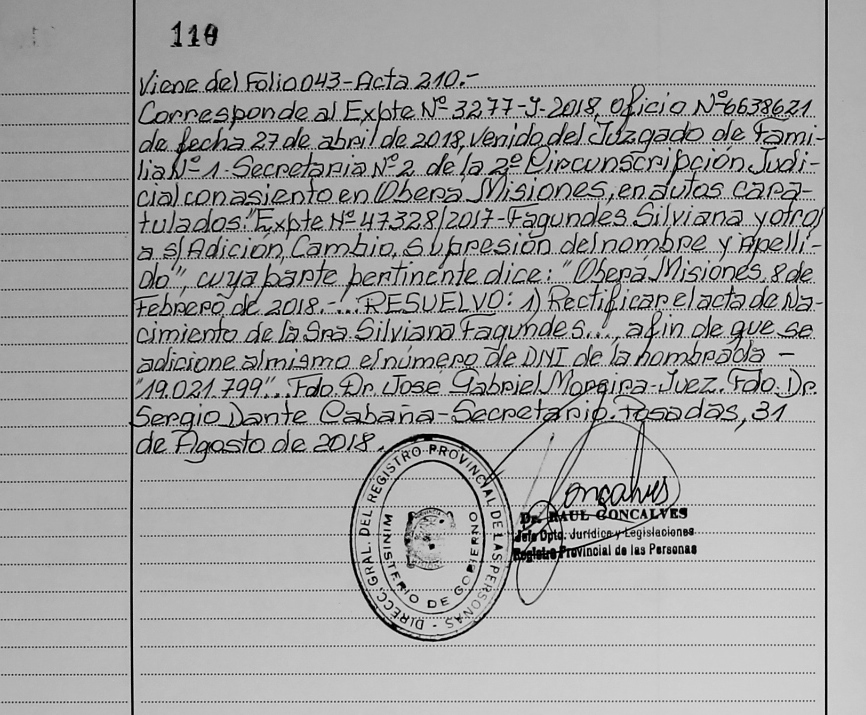 110
Viene del Folio 043-Acta 210.-
Corresponde al Expte Nº 3277-J-2018, Oficio Nº 6638621
de fecha 27 de abril de 2018, venido del Juzgado de Fami-
lia Nº 1-Secretaria Nº 2 de la 2º Circunscripción Judi-
cial con asiento en Oberá Misiones, en autos cara-
tulados: "Expte Nº 47328/2017-Fagundes Silviana y otro/
a s/ Adición, Cambio, supresión del nombre y Apelli-
do", cuya parte pertinente dice: "Oberá Misiones, 8 de
Febrero de 2018.-... RESUELVO: 1) Rectificar el acta de Na-
cimiento de la Sra. Silviana Fagundes..., a fin de que se
adicione al mismo el número de DNI de la nombrada -
"19.021.799"... Fdo. Dr. Jose Gabriel Moreira-Juez. Fdo. Dr.
Sergio Dante Cabaña-Secretario. Posadas, 31
de Agosto de 2018.
DIRECC. GRAL. DEL REGISTRO PROVINCIAL DE LAS PERSONAS -
MINISTERIO DE GOBIERNO
Goncalves
Dr. RAUL GONCALVES
Jefe Dpto. Jurídica y Legislaciones
Registro Provincial de las Personas